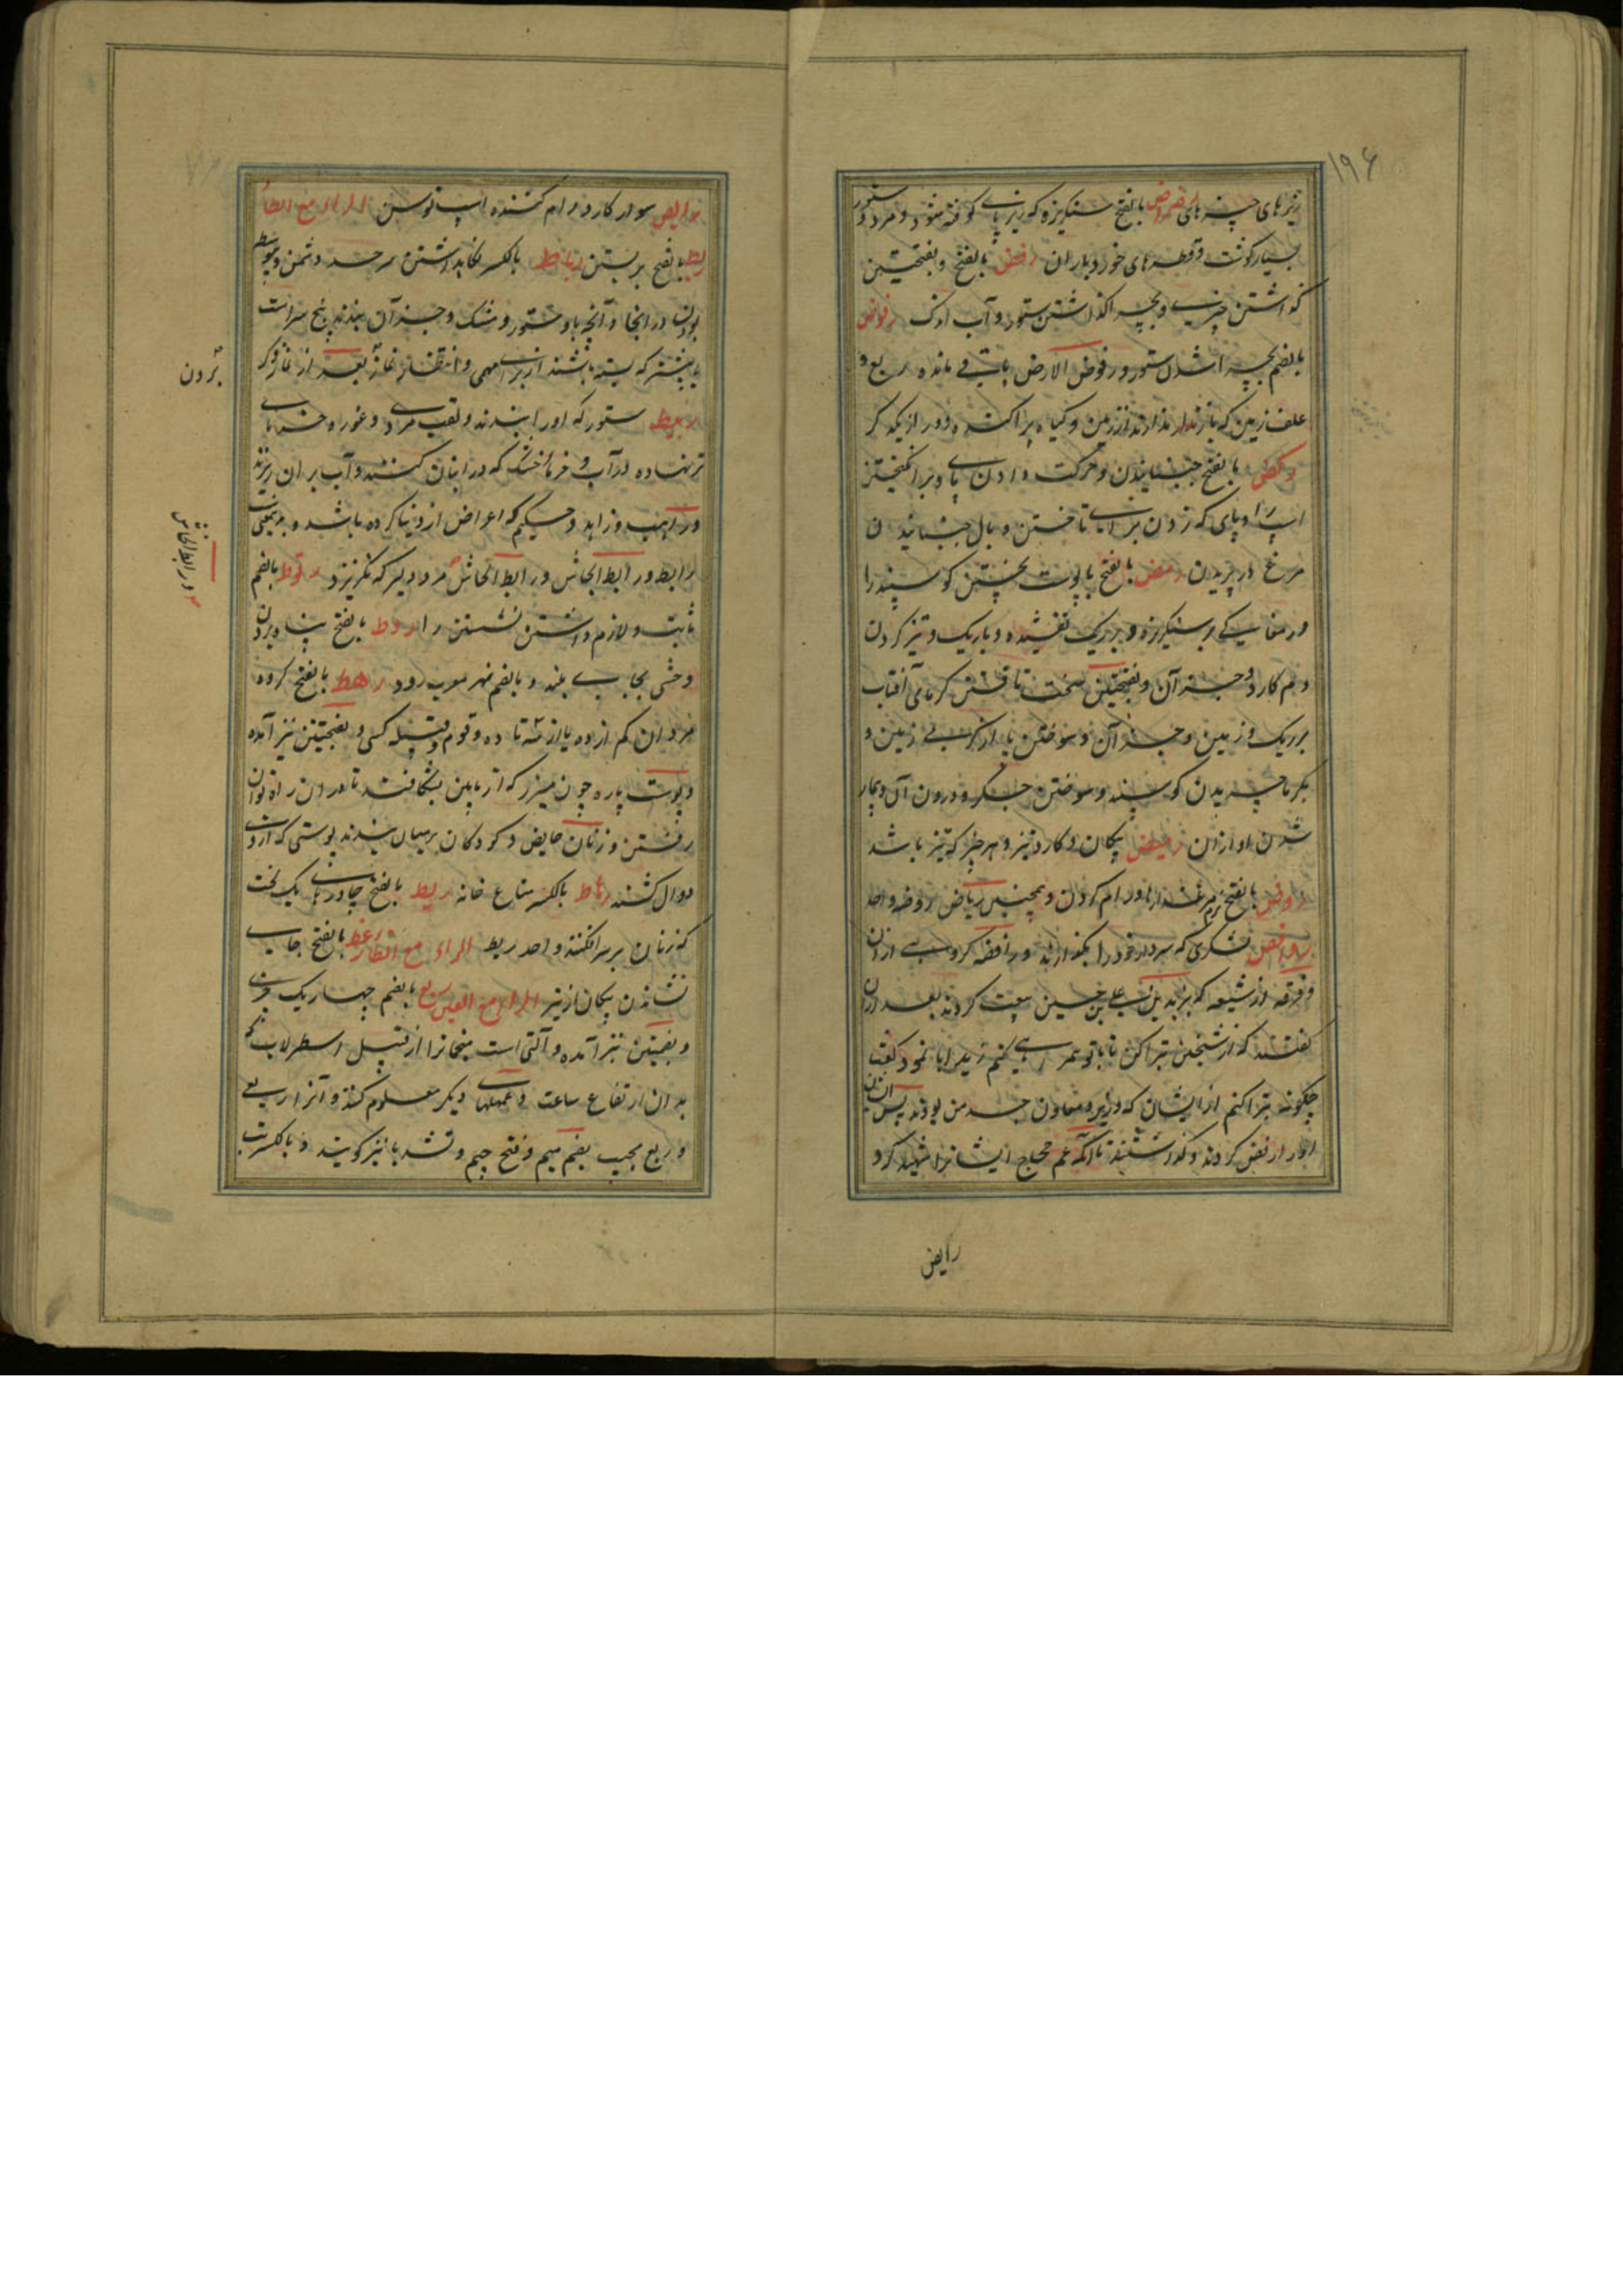 ۱۹۶
ریزهای چیزهای رضراض بالفتح سنگریزه که زیر پای کوفته شود و مرد و ستور
بسیار گوشت و قطره‌های خورد باران رفض بالفتح و بفتحتین
گذاشتن چیزی و بچرا گذاشتن ستور و آب اندک رفوض
بالضم بچرا شدن ستور و رفوض الارض باقی مانده
علف زمین که باز ندارند از زمین و گیاه پراکنده و دور از یکدیگر
رکض بالفتح جنبانیدن و حرکت دادن پای و برانگیختن
اسپ را و پای زدن برای تاختن و بال جنبانیدن
مرغ در پریدن رمض بالفتح با پوست پختن گوسپند را
در مغاکی بر سنگریزه و بر ریگ تفتیده و باریک و تیز کردن
دم کارد و جز آن و بفتحتین سخت تافتن گرمای آفتاب
بر ریگ و زمین و جز آن و سوختن پا از گرمی زمین و
بگرما چریدن گوسپند و سوختن جگر و درون آن و بیمار
شدن او از آن رمیض پیکان و کارد تیز و هر چیز که تیز باشد
روض بالفتح مرغزارها و رام کردن و همچنین ریاض روضه واحد
روافض لشکری که سردار خود را بگذارند و رافضه گروهی از آن
و فرقه از شیعه که بزید بن علی بن حسین بیعت کردند بعد از آن
گفتند که از شیخین تبرا کن تا با تو همراهی کنیم زید ابا نمود گفت
چگونه تبرا کنم از ایشان که وزیر و معاون جد من بودند پس ایشان
او را رفض کردند و گذاشتند تا آنکه حجاج ایشانرا شهید کرد
رایض
رایض سوار کار در رام کننده اسپ توسن الراء مع الطاء
ربط بالفتح بر بستن رباط بالکسر نگاهداشتن سرحد دشمن و پیوسته
بودن در آنجا و آنچه باو ستور و مشک و جز آن بندند پنج سر است
یا بیشتر که بسته باشند از برای مهمی و انتظار نماز بعد از نماز دیگر
ربیط ستور که او را بندند و لقب مردی و غوره خرمای
تر نهاده در آب و خرمای خشک که در انبان کنند و آب بر آن ریزند
و راهب و زاهد و حکیم که اعراض از دنیا کرده باشد و بدین معنی
رابط و رابط الجاش و رابط الجاش مرد دلیر که نگریزد رثوط بالضم
ثابت و لازم داشتن نشستن را روط بالفتح پناه بردن
وحشی بجای بلند و بالضم نهر معرب رود رهط بالفتح گروه
مردان کم از ده یا از سه تا ده و قوم و قبیله کسی و بفتحتین نیز آمده
و پوست پاره چون میزر که از پایین بشکافند تا در آن راه توان
رفتن و زنان حایض و کودکان بر میان بندند پوستی که از وی
دوال کشند رهاط بالکسر متاع خانه ریط بالفتح چادرهای یک لخت
که زنان بر سر افکنند واحد ریطه الراء مع الظاء رعظ بالفتح جای
نشاندن پیکان از تیر الراء مع العین ربع بالضم چهار یک چیزی
و بضمتین نیز آمده و آلتی است منجمان را از قبیل اسطرلاب که
به آن ارتفاع ساعت و عملهای دیگر معلوم کنند و آنرا ربع
و ربع مجیب بضم میم و فتح جیم و تشدید با نیز گویند و بالکسر تب
بردن
و رابط الجاش